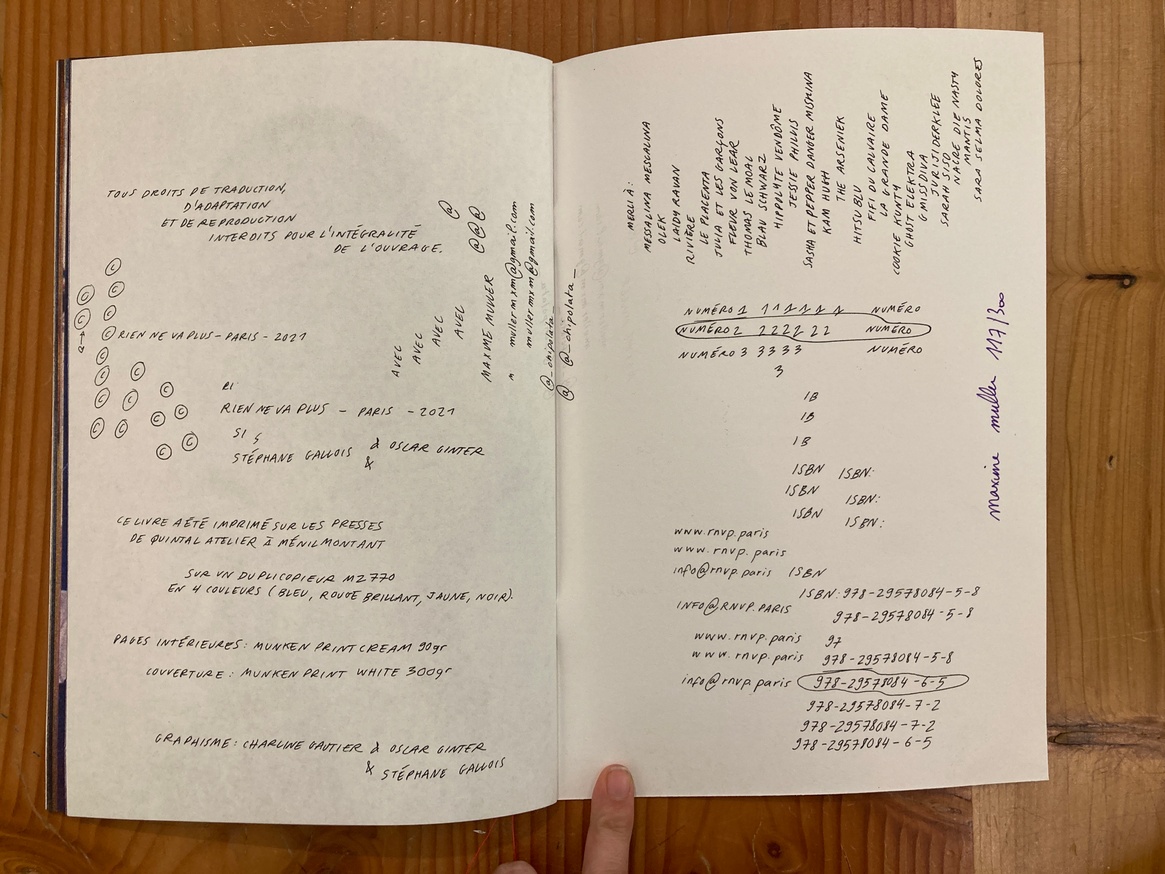 TOUS DROITS DE TRADUCTION,
D'ADAPTATION
ET DE REPRODUCTION
INTERDITS POUR L'INTÉGRALITÉ
DE L'OUVRAGE.
© RIEN NE VA PLUS - PARIS - 2021
RIEN NE VA PLUS - PARIS - 2021
SI
STÉPHANE GALLOIS & OSCAR GINTER
&
AVEC
AVEC
AVEC
AVEC
@
@@@
MAXIME MULLER
mullermxm@gmail.com
mullermxm@gmail.com
@_chipolata_
@ @_chipolata_
CE LIVRE A ÉTÉ IMPRIMÉ SUR LES PRESSES
DE QUINTAL ATELIER À MÉNILMONTANT
SUR UN DUPLICOPIEUR MZ770
EN 4 COULEURS (BLEU, ROUGE BRILLANT, JAUNE, NOIR).
PAGES INTÉRIEURES: MUNKEN PRINT CREAM 90gr
COUVERTURE: MUNKEN PRINT WHITE 300gr
GRAPHISME: CHARLINE GAUTIER & OSCAR GINTER
& STÉPHANE GALLOIS
MERCI À:
MESSALINA MESCALINA
OLEK
LAIDY RAVAN
RIVIÈRE
LE PLACENTA
JULIA ET LES GARÇONS
FLEUR VON LEAR
THOMAS LE MOAL
BLAU SCHWARZ
HIPPOLYTE VENDÔME
JESSIE PHILLIS
SASHA ET PEPPER DANGER MISMINA
KAM HUGH
THE ARSENIEK
HITSU BLU
FIFI DU CALVAIRE
LA GRANDE DAME
COOKIE KUNTY
GHOST ELEKTRA
G MISS DIVA
JURIJ DERKLEE
SARAH SISO
NACRE DIE NASTY
MANTIS
SARA SELMA DOLORES
NUMÉRO 1 1 1 1 1 1 1 NUMÉRO
NUMÉRO 2 2 2 2 2 2 2 NUMÉRO
NUMÉRO 3 3 3 3 3 NUMÉRO
3
IB
IB
IB
ISBN ISBN:
ISBN ISBN:
ISBN ISBN:
www.rnvp.paris
www.rnvp.paris
info@rnvp.paris ISBN
ISBN: 978-29578084-5-8
INFO@RNVP.PARIS 978-29578084-5-8
www.rnvp.paris 97
www.rnvp.paris 978-29578084-5-8
info@rnvp.paris 978-29578084-6-5
978-29578084-7-2
978-29578084-7-2
978-29578084-6-5
maxime muller 117/300